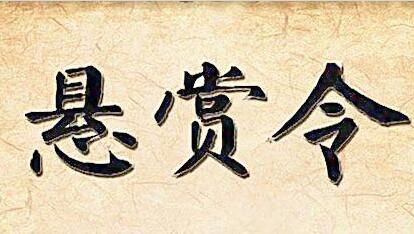 悬赏令